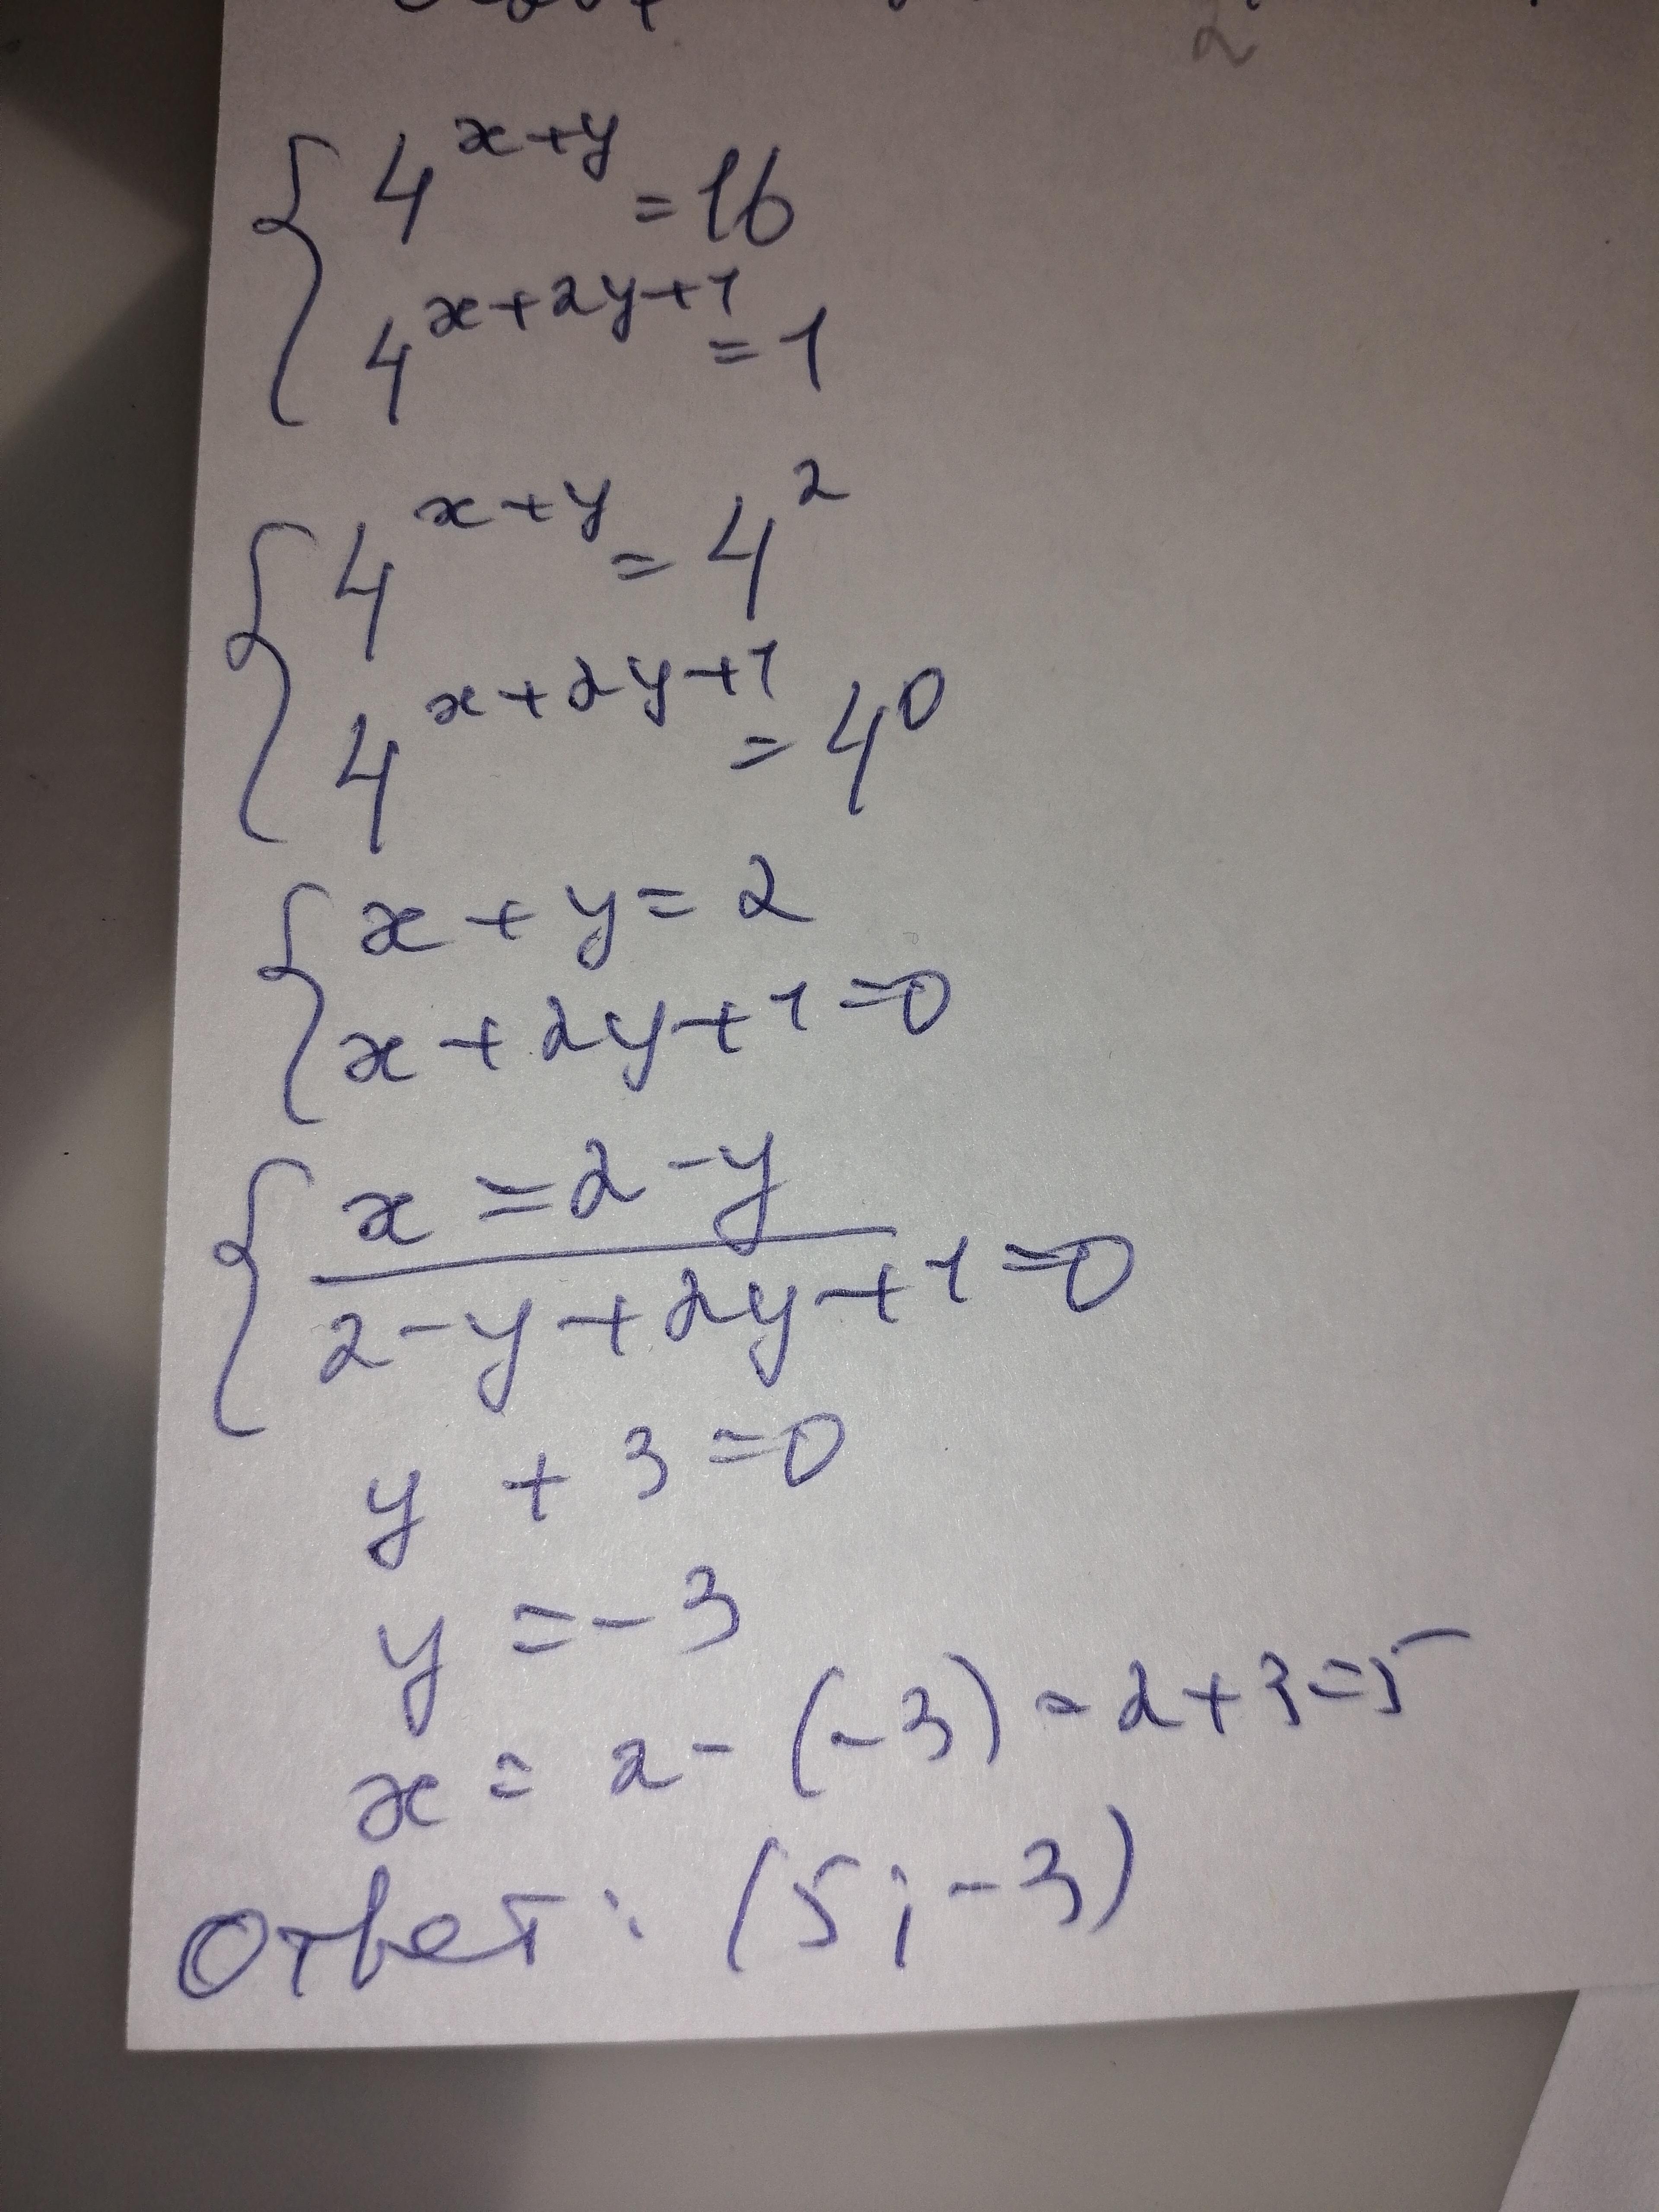 2
4^{x+y} = 16
4^{x+2y+1} = 1
4^{x+y} = 4^2
4^{x+2y+1} = 4^0
x + y = 2
x + 2y + 1 = 0
x = 2 - y
2 - y + 2y + 1 = 0
y + 3 = 0
y = - 3
x = 2 - (-3) = 2 + 3 = 5
Ответ: (5; -3)